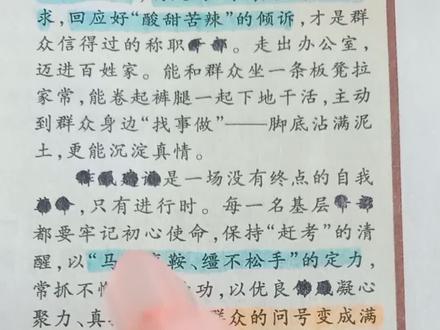 求，回应好“酸甜苦辣”的倾诉，才是群
众信得过的称职。走出办公室，
迈进百姓家。能和群众坐一条板凳拉
家常，能卷起裤腿一起下地干活，主动
到群众身边“找事做”——脚底沾满泥
土，更能沉淀真情。
是一场没有终点的自我
，只有进行时。每一名基层
都要牢记初心使命，保持“赶考”的清
醒，以“马鞍、缰不松手”的定力，
常抓不功，以优良凝心
聚力、真众的问号变成满